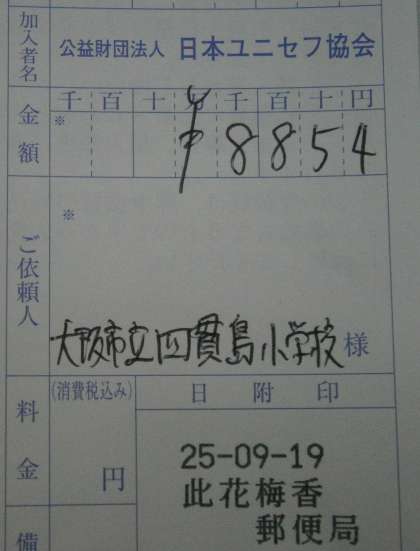 加入者名 公益財団法人 日本ユニセフ協会
金額 千百十万千百十円
※ ¥8854
ご依頼人 ※
大阪市立四貫島小学校様
料金 (消費税込み) 円
日附印
25-09-19
此花梅香
郵便局
備